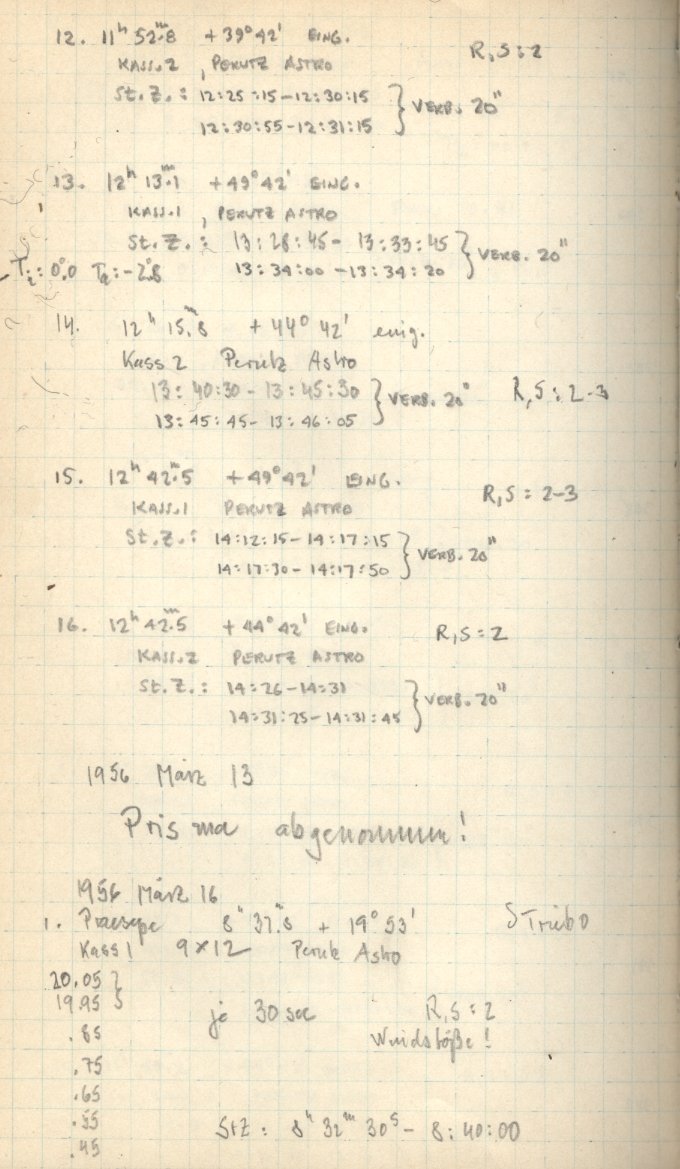 12. 11ʰ 52ᵐ.8 +39°42' EING. R,S:2
KASS.2, PERUTZ ASTRO
St.Z.: 12:25:15-12:30:15 } VERB. 20"
12:30:55-12:31:15
13. 12ʰ 13ᵐ.1 +49°42' EING.
KASS.1, PERUTZ ASTRO
St.Z.: 13:28:45- 13:33:45 } VERB. 20"
13:34:00 -13:34:20
14. 12ʰ 15ᵐ.8 +44° 42' eing.
Kass 2 Perutz Astro
13:40:30-13:45:30 } VERB. 20" R,S:2-3
13:45:45- 13:46:05
15. 12ʰ 42ᵐ.5 +49°42' EING. R,S:2-3
KASS.1 PERUTZ ASTRO
St.Z.: 14:12:15-14:17:15 } VERB. 20"
14:17:30-14:17:50
16. 12ʰ 42ᵐ.5 +44°42' EING. R,S:2
KASS.2 PERUTZ ASTRO
St.Z.: 14:26-14:31 } VERB. 20"
14:31:25-14:31:45
1956 März 13
Prisma abgenommen!
1956 März 16
1. Praesepe 8ʰ 37ᵐ.8 + 19° 53'
Kass 1 9×12 Perutz Astro
20.05 }
19.95
.85 je 30 sec R,S:2
Windstöße!
.75
.65
.55 StZ: 8ʰ 32ᵐ 30ˢ- 8:40:00
.45